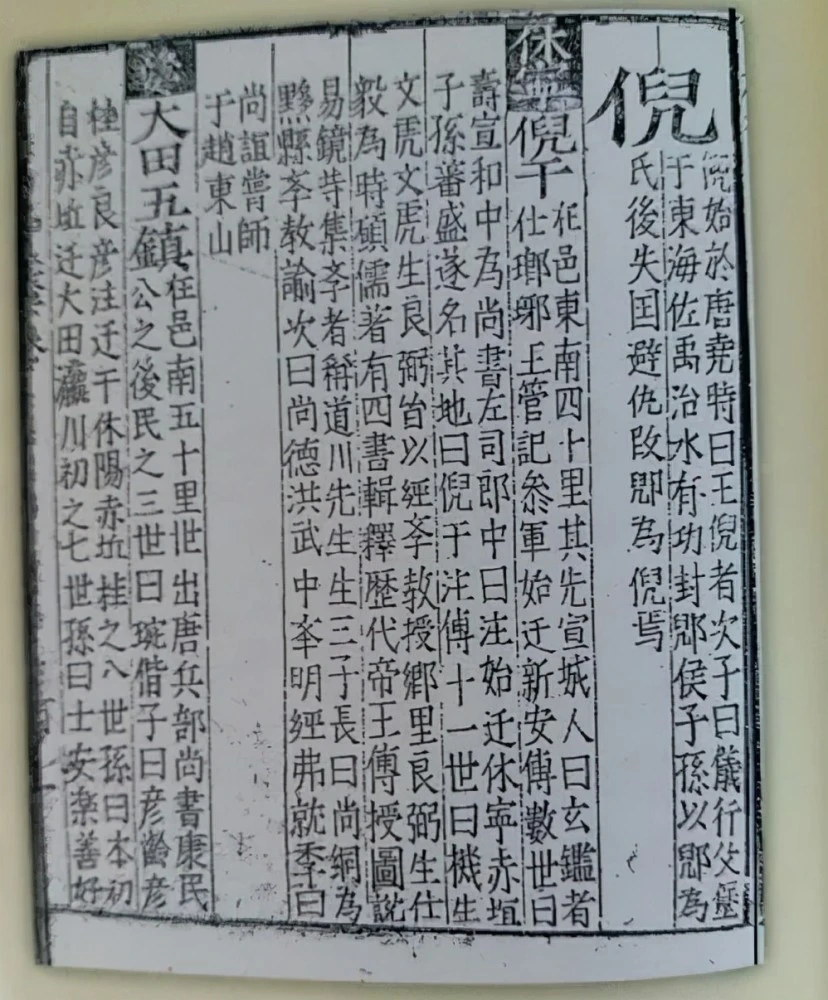 倪
倪始於唐堯時曰王倪者次子曰儀行父
于東海佐禹治水有功封郳侯子孫以郳為
氏後失国避仇改郳為倪焉
休
倪干
在邑東南四十里其先宣城人曰玄鑑者
仕瑯琊王管記叅軍始迁新安傳數世曰
壽宣和中為尚書左司郎中曰注始迁休寕赤垣
子孫蕃盛遂名其地曰倪于注傳十一世曰機生
文虎文虎生良弼皆以經斈教授郷里良弼生仕
毅為時碩儒著有四書輯釋歷代帝王傳授圖説
易鏡寺集斈者稱道川先生生三子長曰尚絅為
黟縣斈教諭次曰尚德洪武中峯明經弗就季曰
尚誼嘗師
于趙東山
大田五鎮
在邑南五十里世出唐兵部尚書康民
公之後民之三世曰琬偕子曰彦齡彦
桂彦良彦注迁干休陽赤坵桂之八世孫曰本初
自赤坵迁大田灊川初之七世孫曰士安楽善好